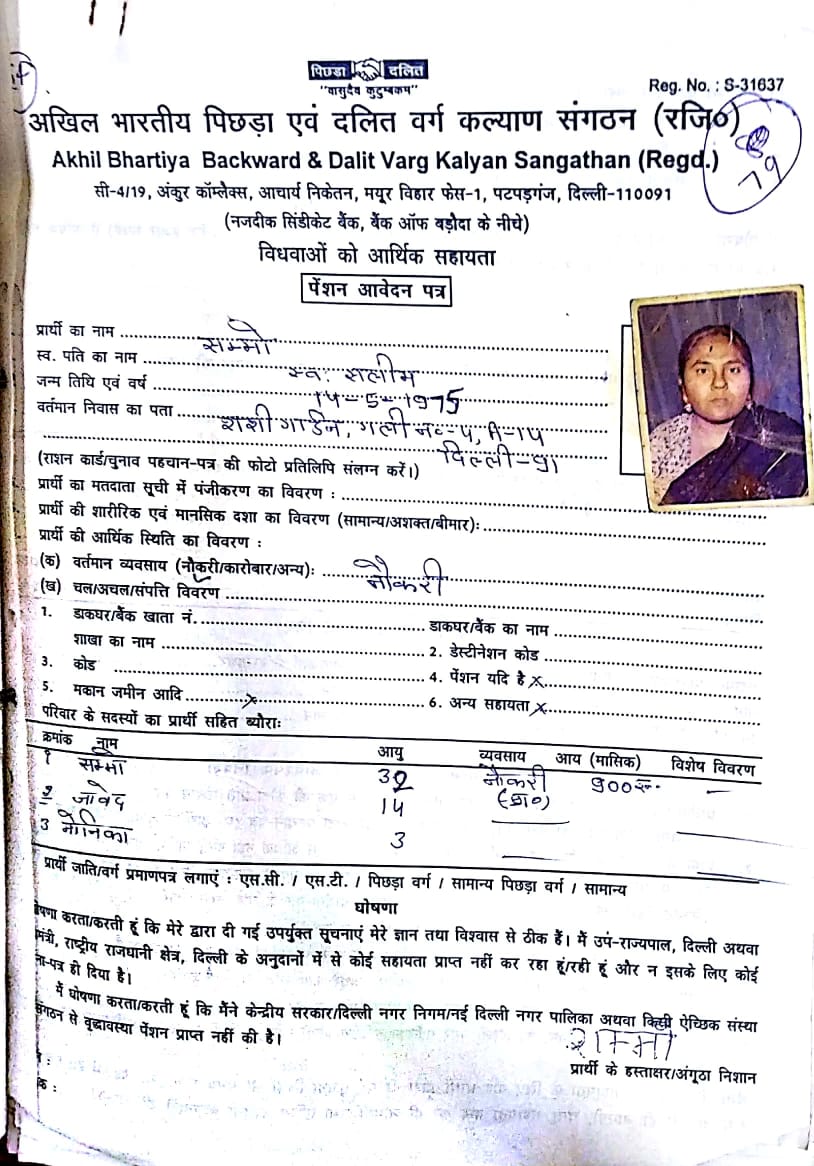 पिछड़ा दलित
"वासुदेव कुटुम्बकम"
Reg. No. : S-31637
अखिल भारतीय पिछड़ा एवं दलित वर्ग कल्याण संगठन (रजि०)
Akhil Bhartiya Backward & Dalit Varg Kalyan Sangathan (Regd.)
79
सी-4/19, अंकुर कॉम्लैक्स, आचार्य निकेतन, मयूर विहार फेस-1, पटपड़गंज, दिल्ली-110091
(नजदीक सिंडीकेट बैंक, बैंक ऑफ बड़ौदा के नीचे)
विधवाओं को आर्थिक सहायता
पेंशन आवेदन पत्र
प्रार्थी का नाम सम्मो
स्व. पति का नाम स्व: सलीम
जन्म तिथि एवं वर्ष 14-5-1975
वर्तमान निवास का पता शशी गार्डन, गली नं-५, A-14
दिल्ली-९१
(राशन कार्ड/चुनाव पहचान-पत्र की फोटो प्रतिलिपि संलग्न करें।)
प्रार्थी का मतदाता सूची में पंजीकरण का विवरण :
प्रार्थी की शारीरिक एवं मानसिक दशा का विवरण (सामान्य/अशक्त/बीमार):
प्रार्थी की आर्थिक स्थिति का विवरण :
(क) वर्तमान व्यवसाय (नौकरी/कारोबार/अन्य): नौकरी
(ख) चल/अचल/संपत्ति विवरण
1. डाकघर/बैंक खाता नं. डाकघर/बैंक का नाम
शाखा का नाम 2. डेस्टीनेशन कोड
3. कोड 4. पेंशन यदि है x
5. मकान जमीन आदि x 6. अन्य सहायता x
परिवार के सदस्यों का प्रार्थी सहित ब्यौराः
क्रमांक नाम आयु व्यवसाय आय (मासिक) विशेष विवरण
१ सम्मो 32 नौकरी ९००रू. —
(प्रा०)
२ जावेद 14
3 मोनिका 3
प्रार्थी जाति/वर्ग प्रमाणपत्र लगाएं : एस.सी. / एस.टी. / पिछड़ा वर्ग / सामान्य पिछड़ा वर्ग / सामान्य
घोषणा
षणा करता/करती हूं कि मेरे द्वारा दी गई उपर्युक्त सूचनाएं मेरे ज्ञान तथा विश्वास से ठीक हैं। मैं उप-राज्यपाल, दिल्ली अथवा
मंत्री, राष्ट्रीय राजधानी क्षेत्र, दिल्ली के अनुदानों में से कोई सहायता प्राप्त नहीं कर रहा हूं/रही हूं और न इसके लिए कोई
ना-पत्र ही दिया है।
मैं घोषणा करता/करती हूं कि मैंने केन्द्रीय सरकार/दिल्ली नगर निगम/नई दिल्ली नगर पालिका अथवा किसी ऐच्छिक संस्था
संगठन से वृद्धावस्था पेंशन प्राप्त नहीं की है।
शम्मो
प्रार्थी के हस्ताक्षर/अंगूठा निशान